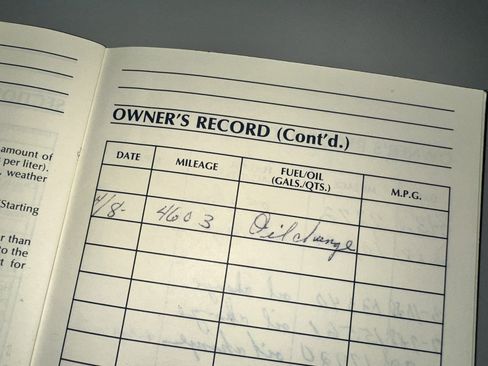 amount of
per liter).
, weather
Starting
er than
to the
t for
OWNER'S RECORD (Cont'd.)
DATE MILEAGE FUEL/OIL (GALS./QTS.) M.P.G.
/8- 4603 Oil change